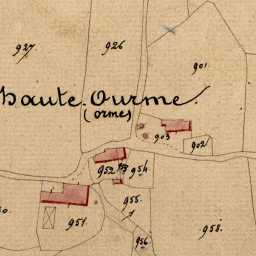 927
926
901
haute Ourme.
(ormes)
903
902
952
954
955
951
958.
956